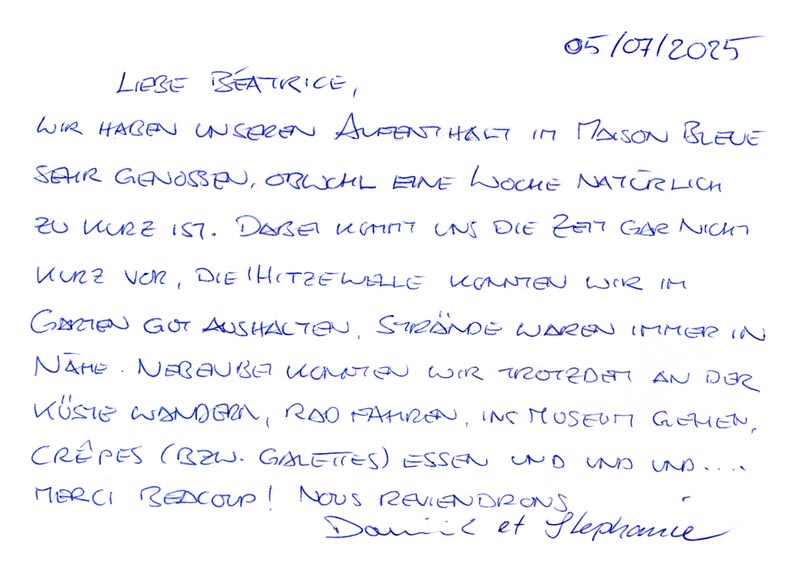 05/07/2025
LIEBE BÉATRICE,
WIR HABEN UNSEREN AUFENTHALT IM MAISON BLEUE
SEHR GENOSSEN, OBWOHL EINE WOCHE NATÜRLICH
ZU KURZ IST. DABEI KOMMT UNS DIE ZEIT GAR NICHT
KURZ VOR, DIE HITZEWELLE KONNTEN WIR IM
GARTEN GUT AUSHALTEN, STRÄNDE WAREN IMMER IN
NÄHE. NEBENBEI KONNTEN WIR TROTZDEM AN DER
KÜSTE WANDERN, RAD FAHREN, INS MUSEUM GEHEN,
CRÊPES (BZW. GALETTES) ESSEN UND UND UND....
MERCI BEACOUP! NOUS REVIENDRONS
Dominik et Stephanie